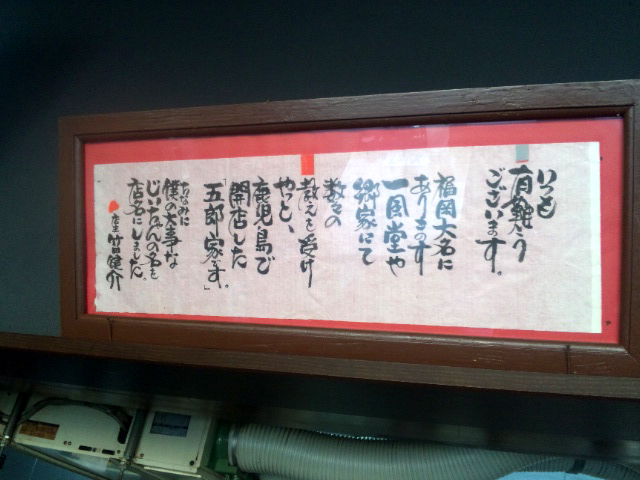 いつも
有難う
ございます。
福岡大名に
あります
一風堂や
郷家にて
数々の
教えを受け
やっと、
鹿児島で
開店した
「五郎家です。」
ちなみに
僕の大事な
じいちゃんの名を
店名にしました。
店主 竹田健介